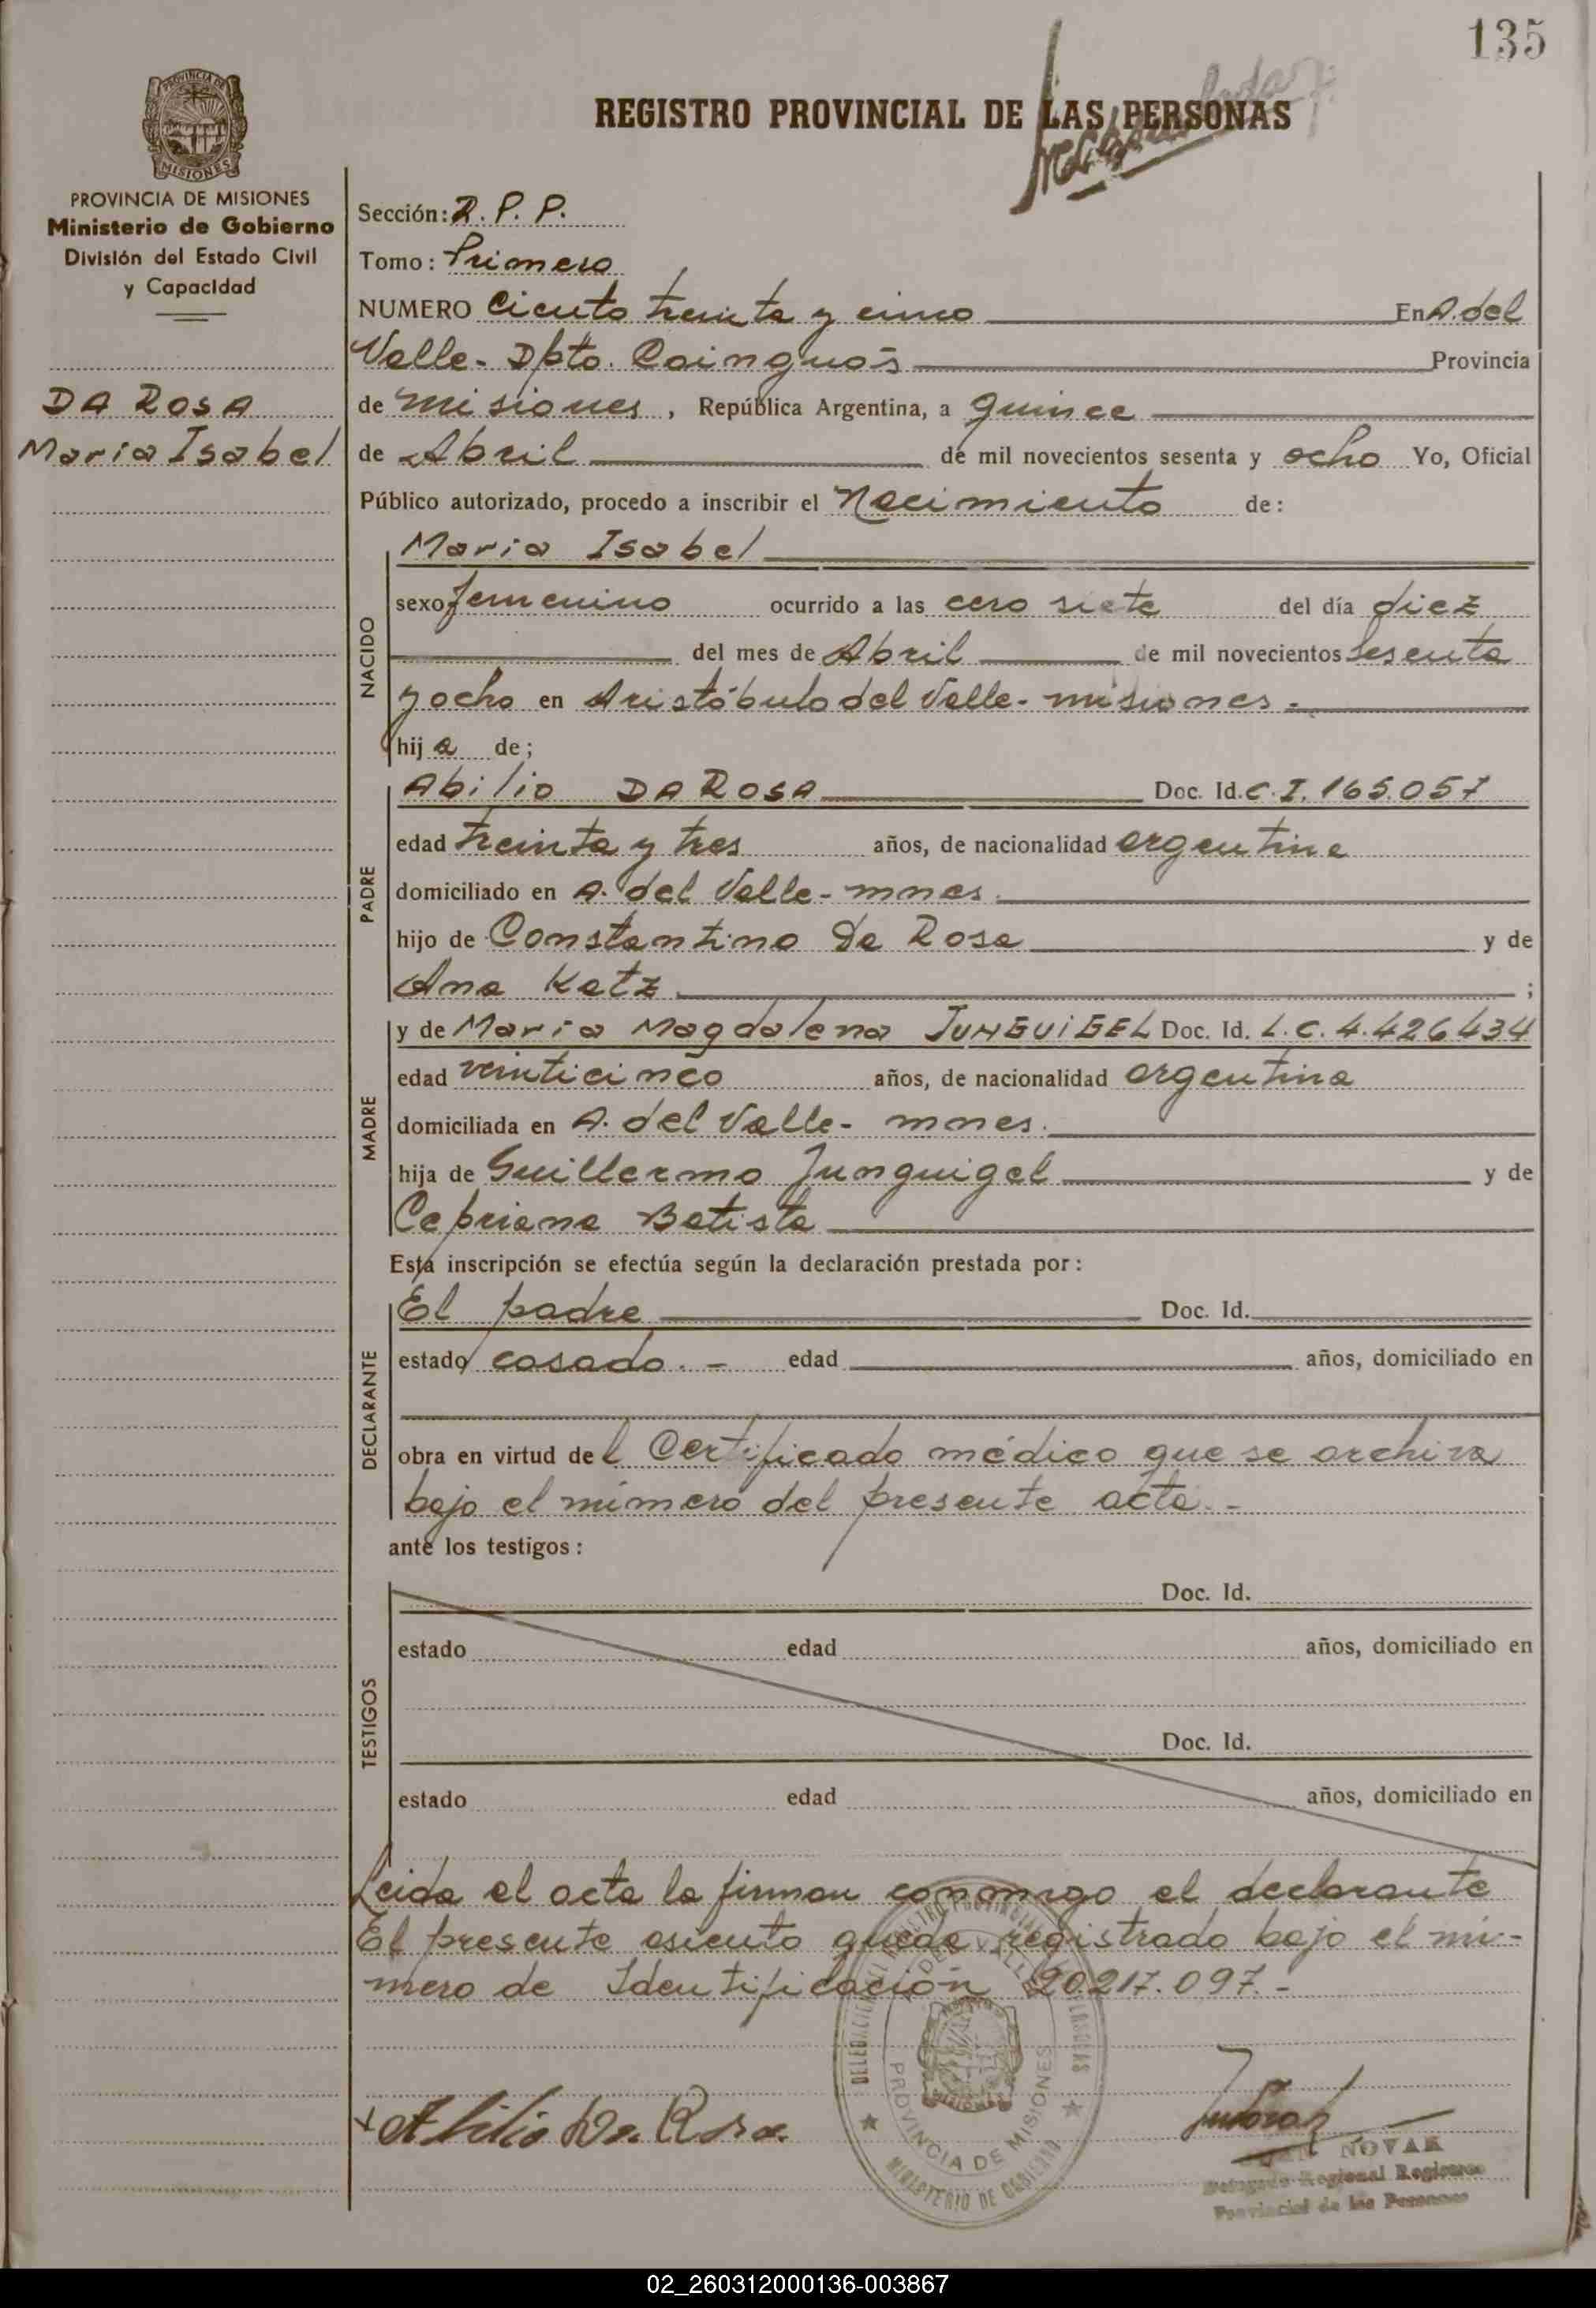 135
REGISTRO PROVINCIAL DE LAS PERSONAS
PROVINCIA DE MISIONES
Ministerio de Gobierno
División del Estado Civil
y Capacidad
DA ROSA
Maria Isabel
Sección: R. P. P.
Tomo: Primero
NUMERO Ciento treinta y cinco En A. del
Valle - Dpto. Cainguás Provincia
de Misiones, República Argentina, a quince
de Abril de mil novecientos sesenta y ocho Yo, Oficial
Público autorizado, procedo a inscribir el Nacimiento de:
NACIDO
Maria Isabel
sexo femenino ocurrido a las cero siete del día diez
del mes de Abril de mil novecientos sesenta
y ocho en Aristóbulo del Valle - misiones -
hij a de;
PADRE
Abilio DA ROSA Doc. Id. C. I. 165.057
edad treinta y tres años, de nacionalidad argentina
domiciliado en A. del Valle - mnes.
hijo de Constantino Da Rosa y de
Ana Katz ;
MADRE
y de Maria Magdalena JUNGUIGEL Doc. Id. L. C. 4.426434
edad veinticinco años, de nacionalidad argentina
domiciliada en A. del Valle - mnes.
hija de Guillermo Junguigel y de
Cepriana Batista
Esta inscripción se efectúa según la declaración prestada por:
DECLARANTE
El padre Doc. Id.
estado casado. - edad años, domiciliado en
obra en virtud del Certificado médico que se archiva
bajo el número del presente acta. -
ante los testigos:
TESTIGOS
Doc. Id.
estado edad años, domiciliado en
Doc. Id.
estado edad años, domiciliado en
Leida el acta la firman conmigo el declarante
El presente asiento queda registrado bajo el nú-
mero de Identificación 20.217.097. -
Abilio Da Rosa
PROVINCIA DE MISIONES
MINISTERIO DE GOBIERNO
NOVAK
Delegado Regional Registro
Provincial de las Personas
02_260312000136-003867